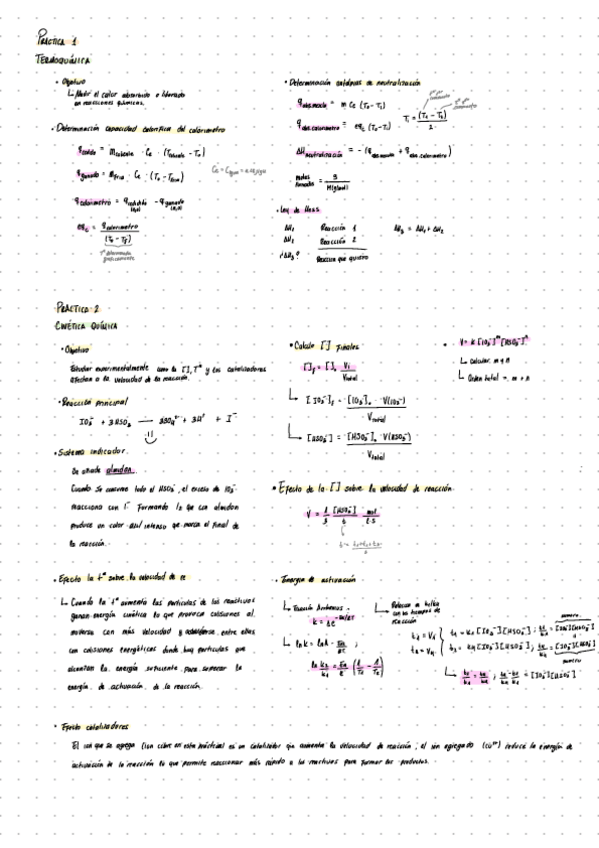 PRÁCTICA 1
TERMOQUÍMICA
• Objetivo
↳ Medir el calor absorbido o liberado
en reacciones químicas.
• Determinación capacidad calorífica del calorímetro
q cedido = m caliente · Ce · (T caliente - To)
q ganado = m fría · Ce · (To - T fría)
q calorímetro = q cedido - q ganado
• Determinación entalpías de neutralización
q abs.mezcla = m Ce (To - Ti)
q abs.calorímetro = eqc (To - Ti)
ΔH neutralización = - (q abs.mezcla + q abs.calorímetro)
moles formados = g / M(g/mol)
• Ley de Hess
ΔH1 Reacción 1
ΔH2 Reacción 2
¿ΔH3? Reacción que quiero
ΔH3 = ΔH1 + ΔH2
PRÁCTICA 2
CINÉTICA QUÍMICA
• Objetivo
Estudiar experimentalmente como la [ ], Tª y los catalizadores
afectan a la velocidad de la reacción.
• Reacción principal
• Sistema indicador.
Se añade almidón.
Cuando se consume todo el HSO3-, el exceso de IO3-
reacciona con I- formando I2 que con almidón
produce un color azul intenso que marca el final de
la reacción.
• Cálculo [ ] finales
[ ]f = [ ]o · Vi / Vtotal
↳ [IO3-]f = [IO3-]o · V(IO3-) / Vtotal
↳ [HSO3-] = [HSO3-]o · V(HSO3-) / Vtotal
• V = k [IO3-]^m [HSO3-]^n
↳ Calcular m y n
↳ Orden total = m + n
• Efecto de la [ ] sobre la velocidad de reacción.
V = 1/3 [HSO3-]/t mol/L·s
• Efecto la tª sobre la velocidad de
↳ Cuando la tª aumenta las partículas de los reactivos
ganan energía cinética lo que provoca colisiones al
moverse con más velocidad y entre ellas
con colisiones energéticas donde hay partículas que
alcanzan la energía suficiente para superar la
energía de activación de la reacción.
• Energía de activación
↳ Ecuación Arrhenius
↳ ln k = ln A - Ea/RT
• Efecto catalizadores
El ion que se agrega (ion cobre en esta práctica) es un catalizador que aumenta la velocidad de reacción; el ion agregado (Cu2+) reduce la energía de
activación de la reacción lo que permite reaccionar más rápido a los reactivos para formar los productos.